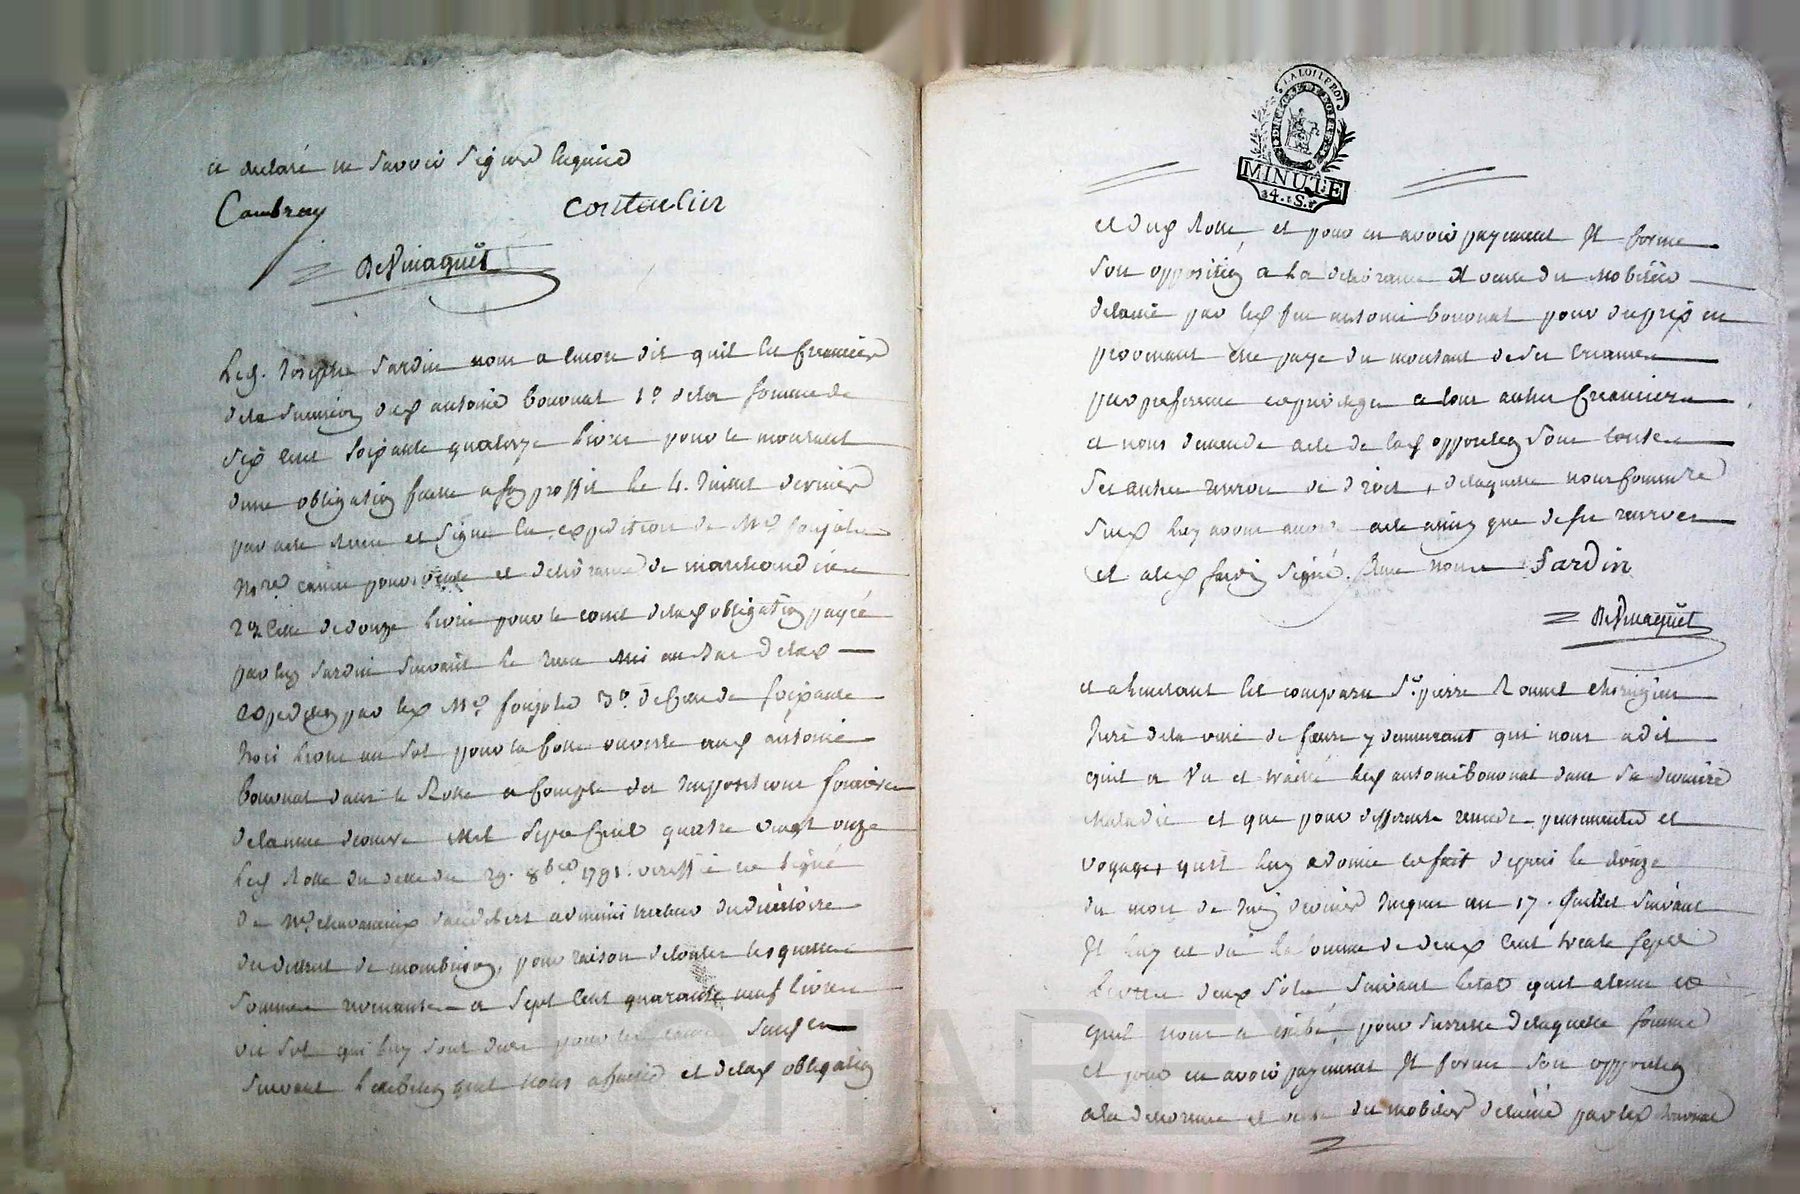 et declaré ne savoir signer lequie
Cambray coutaulin
DeVinaquet
Led. Joseph Sardin nous a encore dit quil est Creancier
de la sucession dud antoine bouvat 1º dela somme de
six cent soixante quatorze livres pour le montant
dune obligation faitte a son proffit le 4. Juillet dernier
par acte Reçu et signé en expedition de Me foujols
No.re contre pour vente et delivrance de marchandises
2º celle de douze livres pour le cout de lad obligation payée
par led Sardin suivant le reçu mis au bas de lad
expedition par led Me foujols 3º de celle de soixante
trois livres un sol pour la cotte ouverte aud antoine
bouvat dans le Rolle a compte des impositions fonciere
de lannée derniere mil sept cent quatre vingt onze
led Rolle en datte du 29. 8bre 1791. veriffié et signé
de Mr administrateur du directoire
du district de mombrison, pour raison de toutes lesquelles
sommes revenantes a sept cent quarante neuf livres
un sol qui luy sont dues pour les causes sus en
suivant lexhibition quil nous a faitte et de lad obligation
LA LOI LE ROI
MINUTE
4. S.
et dud Rolle, et pour en avoir payement Il forme
son opposition a la delivrance et vente du Mobilier
delaissé par led feu antoine bouvat pour du prix en
provenant etre payé du montant de ses creances
par preference et privilege a tous autres Creanciers
et nous demande acte de lad opposition sous toutes
ses autres reserves de droit, de laquelle nous Commissaire
susd luy avons acte ainsy que de ses reserves
et a led sardin signé. avec nous Sardin
DeVinaquet
et a linstant est comparu Sr. pierre Ronnet chirurgien
Juré de la ville de feurs y demeurant qui nous a dit
quil a Vu et traité led antoine bouvat dans sa derniere
Maladie et que pour differents remede pensements et
voyages quil luy a donné et fait depuis le douze
du mois de Juin dernier Jusques au 17. Juillet suivant
Il luy est du la somme de deux cent trente sept
livres deux sols suivant letat quil a tenu et
quil nous a exibé, pour sureté de laquelle somme
et pour en avoir payement Il forme son opposition
a la delivrance et vente du mobilier delaissé par led bouvat